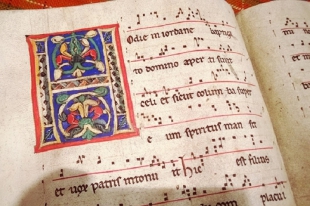 Hodie in iordane
to domino aper ti sunt
celi et sicut colum ba super
e um spiritus man sit
et uox patris intonu it hic est filius
placui